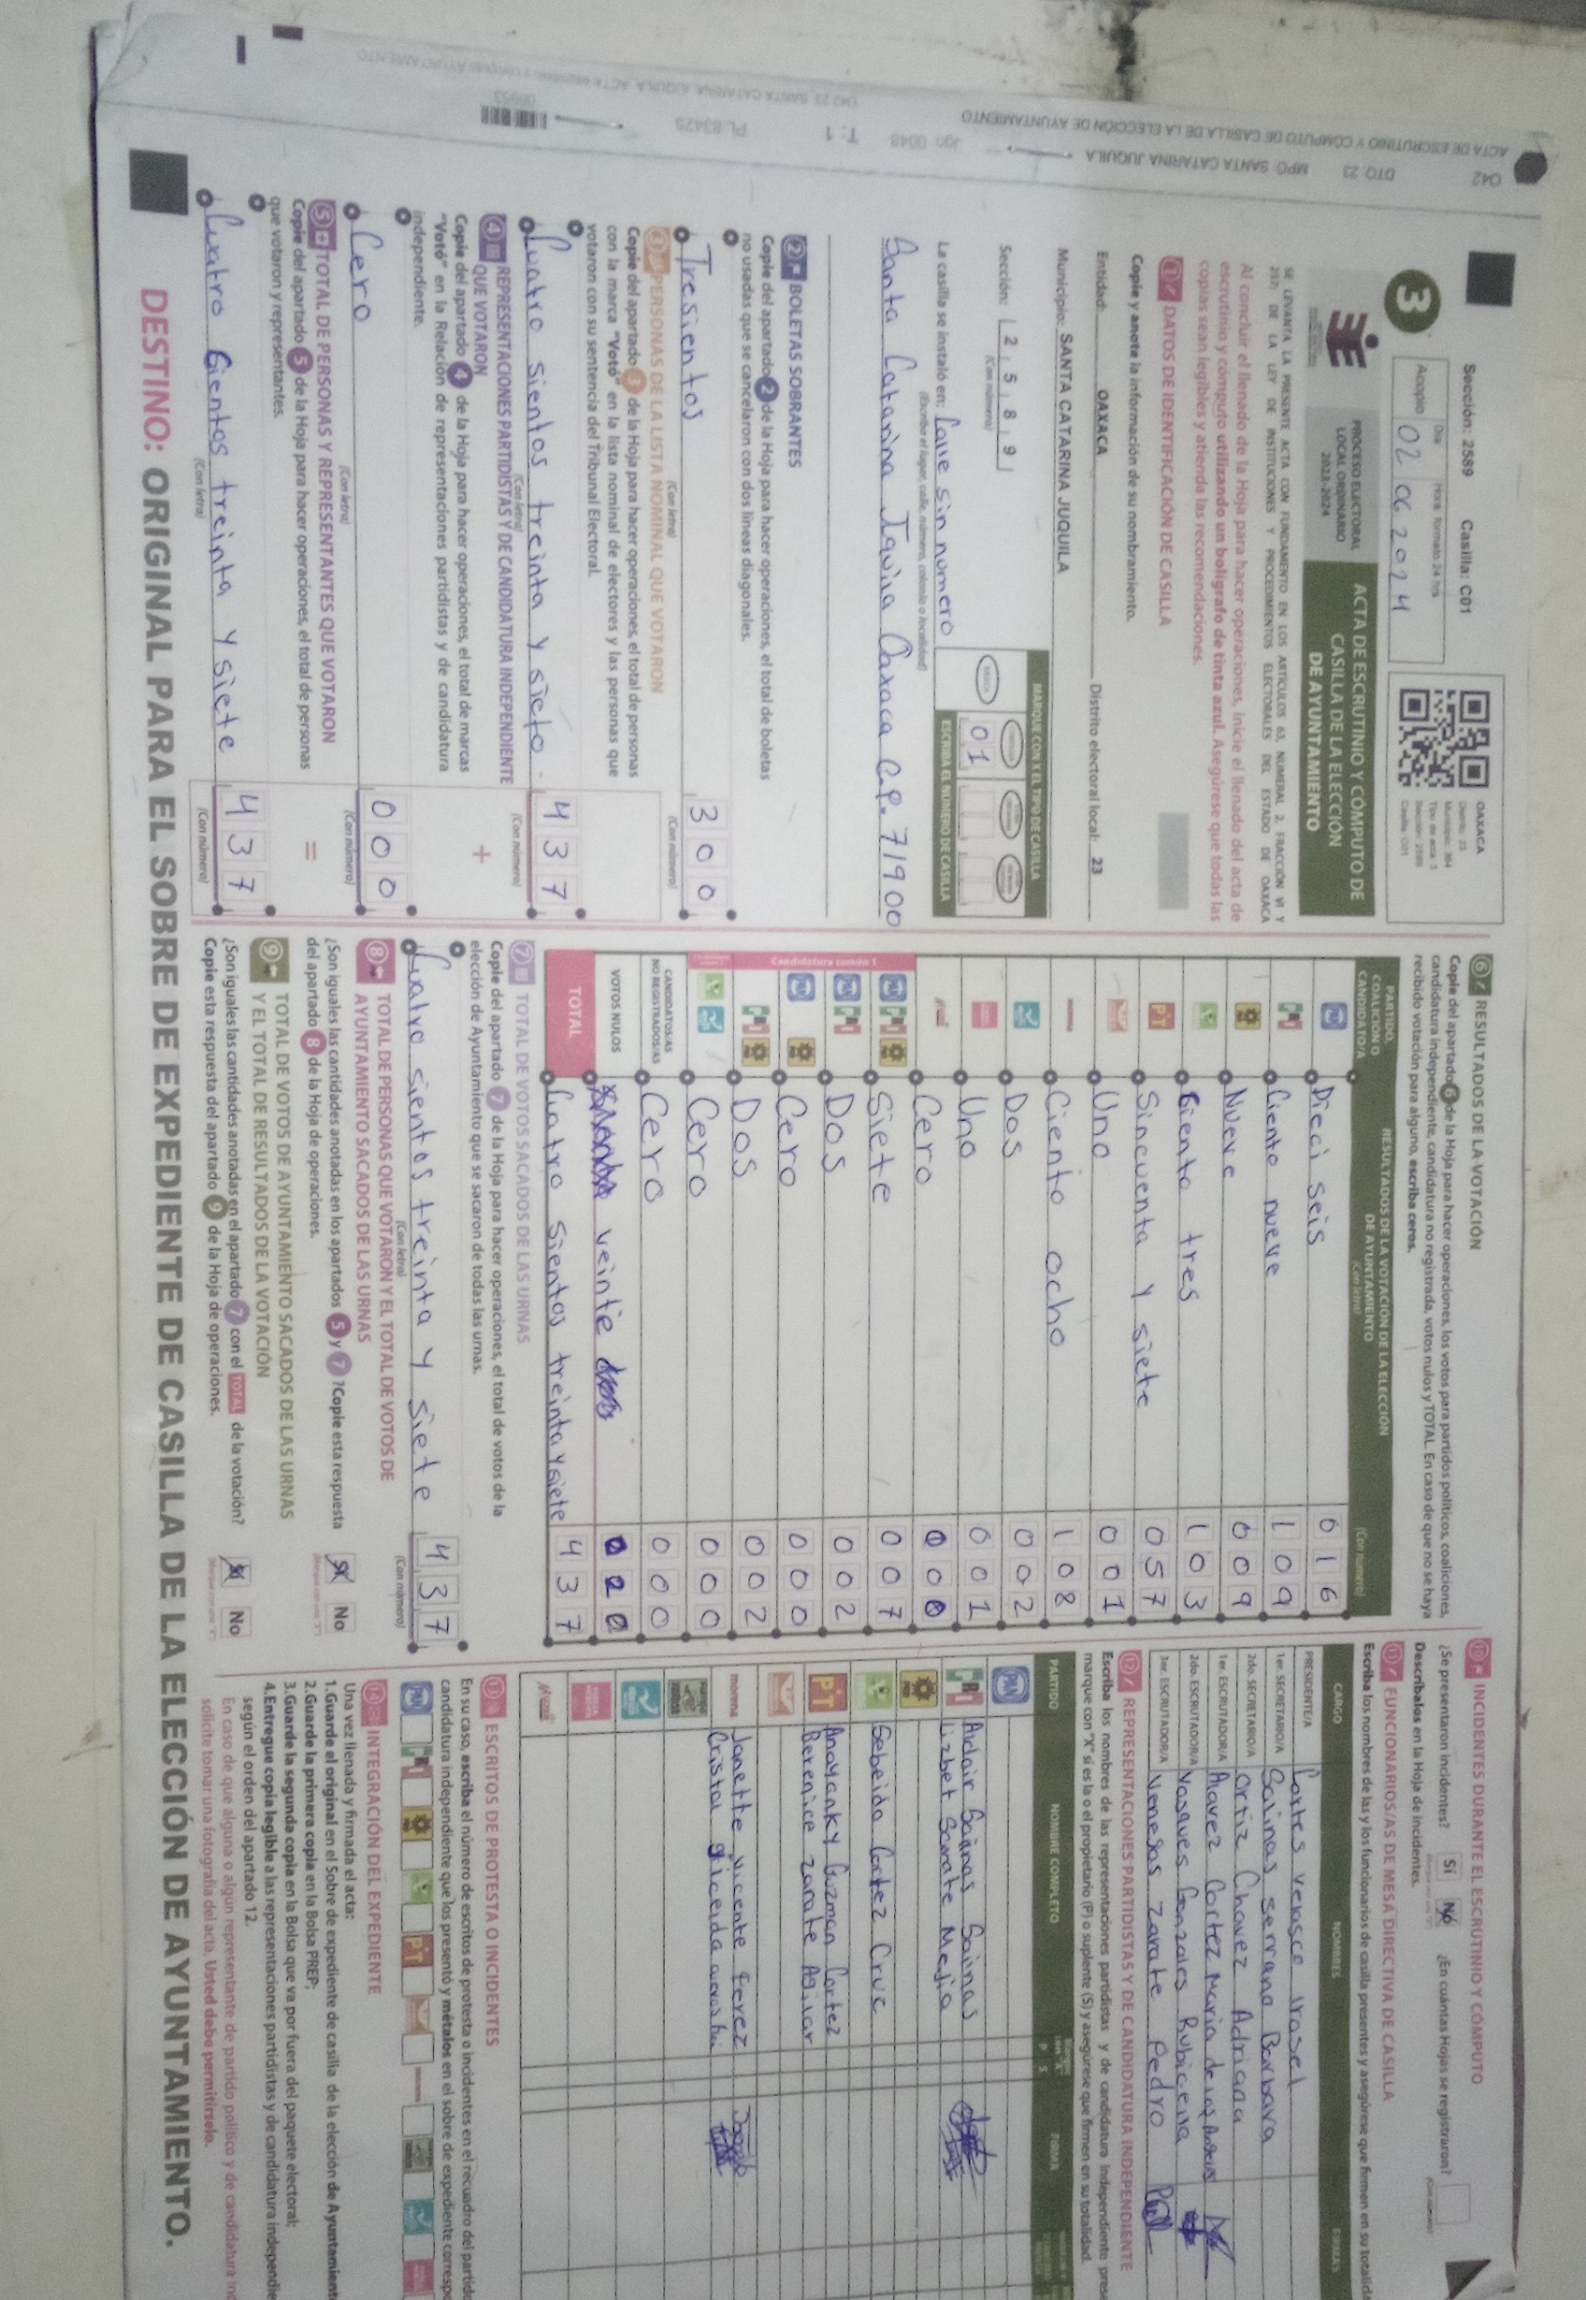 Sección: 2589 Casilla: C01
3
Día Hora formato 24 hrs
Acopio 02 06 2024
OAXACA
Distrito: 23
PROCESO ELECTORAL
LOCAL ORDINARIO
2023-2024
ACTA DE ESCRUTINIO Y CÓMPUTO DE
CASILLA DE LA ELECCIÓN
DE AYUNTAMIENTO
SE LEVANTA LA PRESENTE ACTA CON FUNDAMENTO EN LOS ARTÍCULOS 63, NUMERAL 2, FRACCIÓN VI Y
DE LA LEY DE INSTITUCIONES Y PROCEDIMIENTOS ELECTORALES DEL ESTADO DE OAXACA
Al concluir el llenado de la Hoja para hacer operaciones, inicie el llenado del acta de
escrutinio y cómputo utilizando un bolígrafo de tinta azul. Asegúrese que todas las
copias sean legibles y atienda las recomendaciones.
1 DATOS DE IDENTIFICACIÓN DE CASILLA
Copie y anote la información de su nombramiento.
Entidad: OAXACA Distrito electoral local: 23
Municipio: SANTA CATARINA JUQUILA
Sección: 2 5 8 9
(Con número)
MARQUE CON X EL TIPO DE CASILLA
01
ESCRIBA EL NÚMERO DE CASILLA
La casilla se instaló en: Calle sin numero
(Escriba el lugar, calle, número, colonia o localidad)
Santa Catarina Juquila Oaxaca C.P. 71900
2 BOLETAS SOBRANTES
Copie del apartado 2 de la Hoja para hacer operaciones, el total de boletas
no usadas que se cancelaron con dos líneas diagonales.
Tresientos 300
(Con letra) (Con número)
3 PERSONAS DE LA LISTA NOMINAL QUE VOTARON
Copie del apartado 3 de la Hoja para hacer operaciones, el total de personas
con la marca "Votó" en la lista nominal de electores y las personas que
votaron con su sentencia del Tribunal Electoral.
Cuatro sientos treinta y siete 437
(Con letra) (Con número)
4 REPRESENTACIONES PARTIDISTAS Y DE CANDIDATURA INDEPENDIENTE
QUE VOTARON +
Copie del apartado 4 de la Hoja para hacer operaciones, el total de marcas
"Votó" en la Relación de representaciones partidistas y de candidatura
independiente.
Cero 000
(Con letra) (Con número)
5 TOTAL DE PERSONAS Y REPRESENTANTES QUE VOTARON =
Copie del apartado 5 de la Hoja para hacer operaciones, el total de personas
que votaron y representantes.
Cuatro Cientos treinta y siete 437
(Con letra) (Con número)
6 RESULTADOS DE LA VOTACIÓN
Copie del apartado 6 de la Hoja para hacer operaciones, los votos para partidos políticos, coaliciones,
candidatura independiente, candidatura no registrada, votos nulos y TOTAL. En caso de que no se haya
recibido votación para alguno, escriba ceros.
PARTIDO,
COALICIÓN O
CANDIDATO/A
RESULTADOS DE LA VOTACIÓN DE LA ELECCIÓN
DE AYUNTAMIENTO
(Con letra) (Con número)
PAN Dieci seis 016
PRI Ciento nueve 109
PRD Nueve 009
Ciento tres 103
PT Sincuenta y siete 057
Uno 001
Ciento ocho 108
Dos 002
Uno 001
Cero 000
Candidatura común 1
Siete 007
Dos 002
Cero 000
Dos 002
Cero 000
CANDIDATOS/AS
NO REGISTRADOS/AS Cero 000
VOTOS NULOS veinte 020
TOTAL Cuatro sientos treinta y siete 437
7 TOTAL DE VOTOS SACADOS DE LAS URNAS
Copie del apartado 7 de la Hoja para hacer operaciones, el total de votos de la
elección de Ayuntamiento que se sacaron de todas las urnas.
Cualro sientos treinta y siete 437
(Con letra) (Con número)
8 TOTAL DE PERSONAS QUE VOTARON Y EL TOTAL DE VOTOS DE
AYUNTAMIENTO SACADOS DE LAS URNAS
¿Son iguales las cantidades anotadas en los apartados 5 y 7? Copie esta respuesta
del apartado 8 de la Hoja de operaciones. Sí No
9 TOTAL DE VOTOS DE AYUNTAMIENTO SACADOS DE LAS URNAS
Y EL TOTAL DE RESULTADOS DE LA VOTACIÓN
¿Son iguales las cantidades anotadas en el apartado 7 con el TOTAL de la votación?
Copie esta respuesta del apartado 9 de la Hoja de operaciones. Sí No
10 INCIDENTES DURANTE EL ESCRUTINIO Y CÓMPUTO
¿Se presentaron incidentes? Sí No ¿En cuántas Hojas se registraron?
Descríbalos en la Hoja de incidentes.
11 FUNCIONARIOS/AS DE MESA DIRECTIVA DE CASILLA
Escriba los nombres de las y los funcionarios de casilla presentes y asegúrese que firmen en su totalid
CARGO NOMBRES FIRMAS
PRESIDENTE/A Cortes Velasco Irasel
1er. SECRETARIO/A Salinas Serrano Barbara
2do. SECRETARIO/A Ortiz Chavez Adriana
1er. ESCRUTADOR/A Chavez Cortez Maria de los
2do. ESCRUTADOR/A Vasques Gonzales Rubiceila
3er. ESCRUTADOR/A Venegas Zarate Pedro
12 REPRESENTACIONES PARTIDISTAS Y DE CANDIDATURA INDEPENDIENTE
Escriba los nombres de las representaciones partidistas y de candidatura independiente pres
marque con "X" si es la o el propietario (P) o suplente (S) y asegúrese que firmen en su totalidad.
PARTIDO NOMBRE COMPLETO P S FIRMA
PAN
PRI Aldair Salinas Salinas
Lizbet Sarate Mejia
PRD
Sebeida Cortez Cruz
PT Anayanky Guzman Cortez
Berenice Zarate Aguilar
morena Janette Vicente Perez
Cristal gliceida
13 ESCRITOS DE PROTESTA O INCIDENTES
En su caso, escriba el número de escritos de protesta o incidentes en el recuadro del partido
candidatura independiente que los presentó y métalos en el sobre de expediente corresp
14 INTEGRACIÓN DEL EXPEDIENTE
Una vez llenada y firmada el acta:
1. Guarde el original en el Sobre de expediente de casilla de la elección de Ayuntamient
2. Guarde la primera copia en la Bolsa PREP;
3. Guarde la segunda copia en la Bolsa que va por fuera del paquete electoral;
4. Entregue copia legible a las representaciones partidistas y de candidatura independie
según el orden del apartado 12.
En caso de que alguna o algún representante de partido político y de candidatura ind
solicite tomar una fotografía del acta, Usted debe permitírselo.
DESTINO: ORIGINAL PARA EL SOBRE DE EXPEDIENTE DE CASILLA DE LA ELECCIÓN DE AYUNTAMIENTO.
042 DTO. 23 MPO: SANTA CATARINA JUQUILA Jgn: 0048 T: 1 PL: 83425
ACTA DE ESCRUTINIO Y CÓMPUTO DE CASILLA DE LA ELECCIÓN DE AYUNTAMIENTO